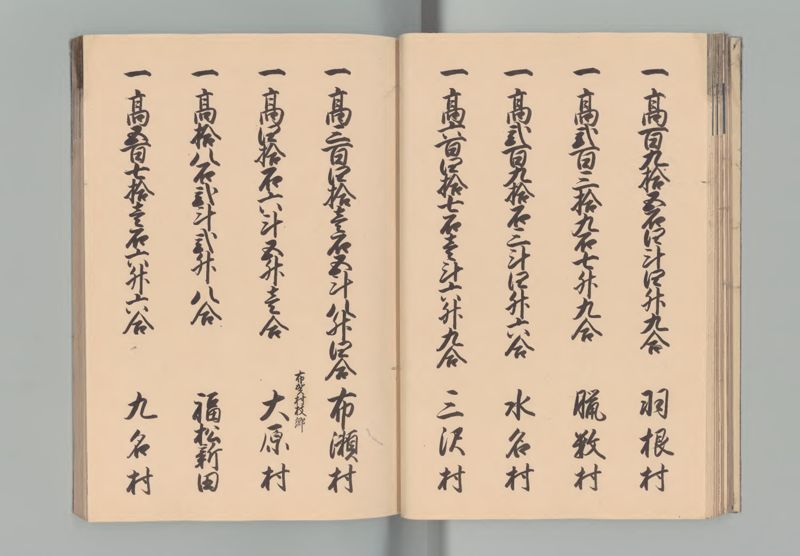 一 高百九拾五石四斗四升九合 羽根村
一 高弐百三拾九石七升九合 臘数村
一 高弐百九拾石三斗四升六合 水名村
一 高六百四拾七石壱斗六升九合 三沢村
一 高三百四拾壱石五斗八升四合 布瀬村
布瀬村枝郷
一 高四拾石六斗五升壱合 大原村
一 高拾八石弐斗弐升八合 福松新田
一 高五百七拾壱石六升六合 九名村